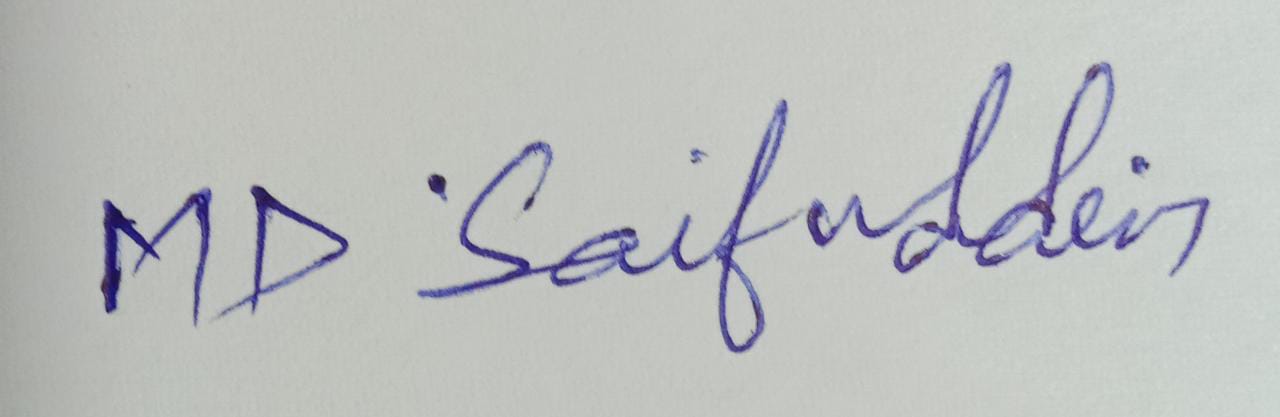 MD. Saifuddein